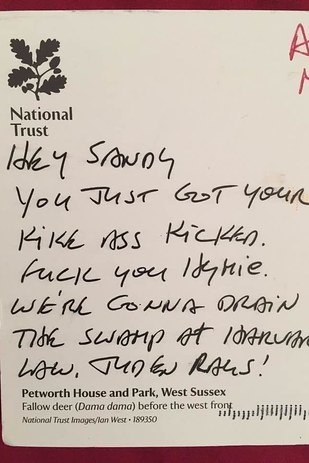 A
M
National
Trust
HEY SANDY
YOU JUST GOT YOUR
KIKE ASS KICKED.
FUCK YOU HYMIE.
WE'RE GONNA DRAIN
THE SWAMP AT HARVAR
LAW. JUDEN RAUS!
Petworth House and Park, West Sussex
Fallow deer (Dama dama) before the west front
National Trust Images/Ian West • 189350